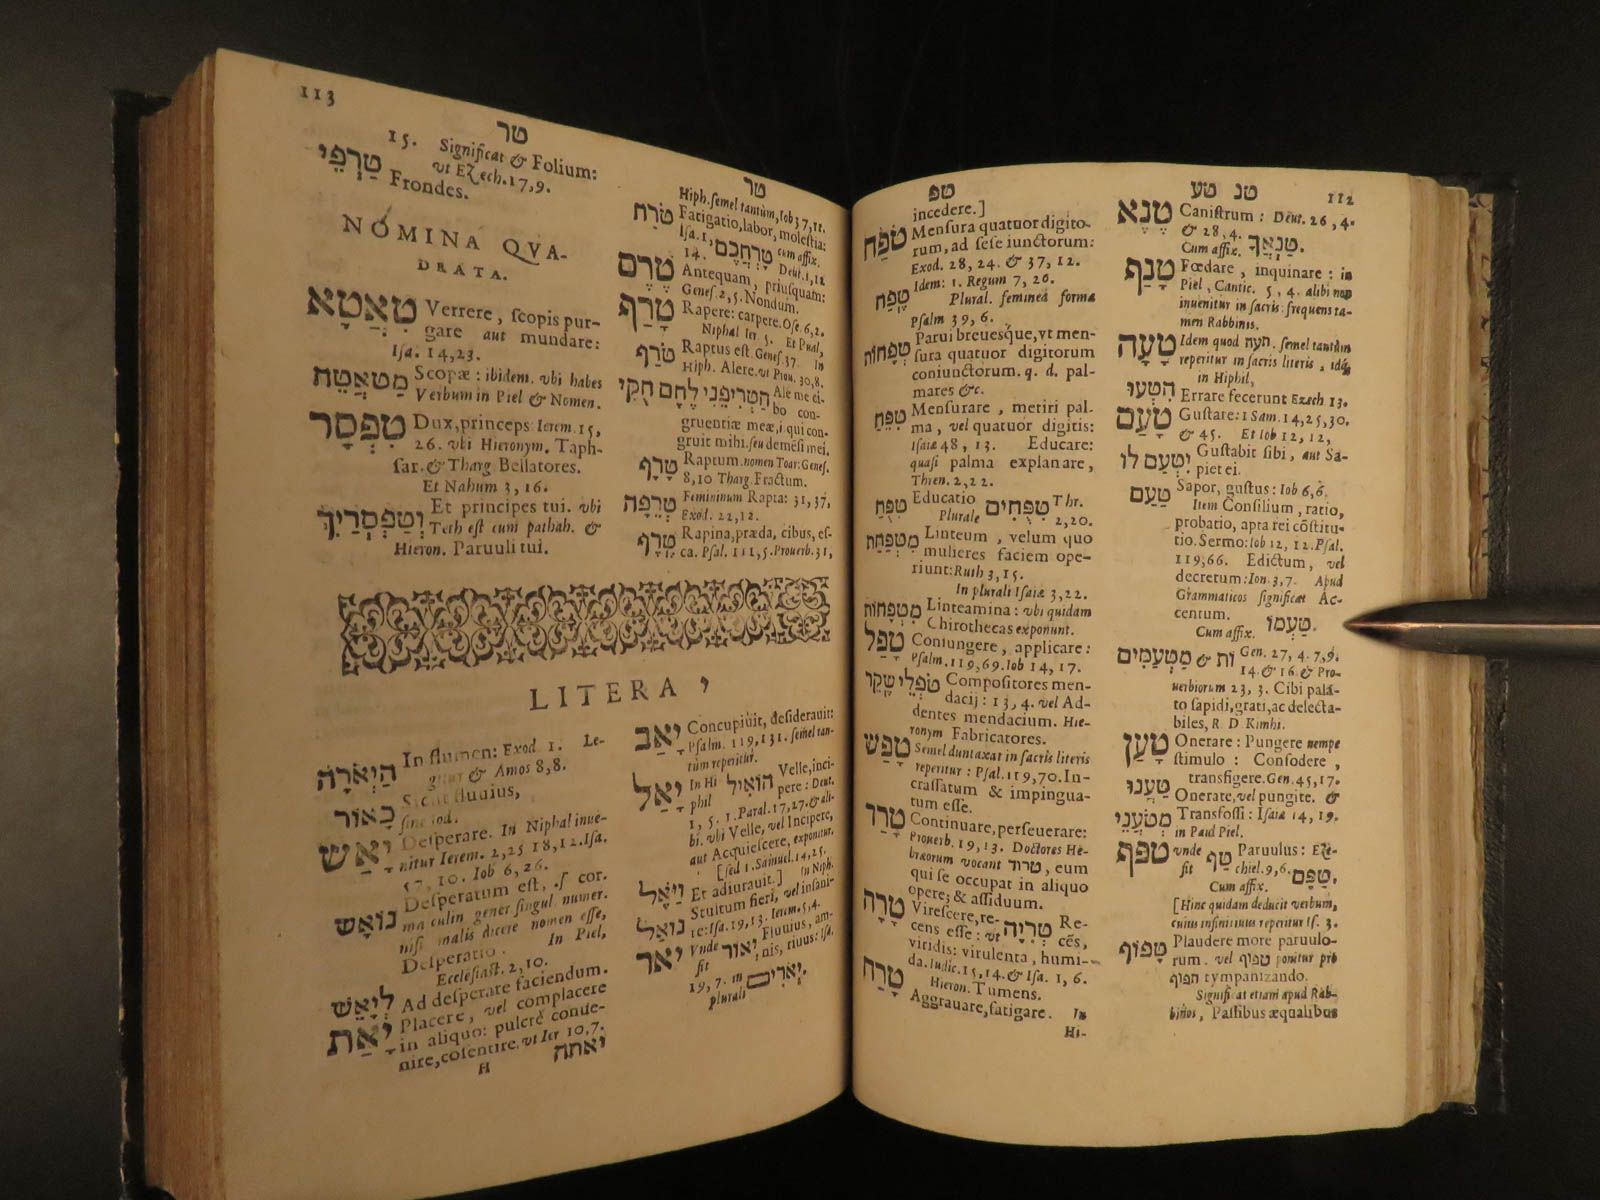 טנ טע 112
טֶנֶא Caniſtrum : Deut. 26, 4.
& 28, 4.
Cum affix. טַנְאֲךָ.
טָנַף Fœdare, inquinare : in
Piel, Cantic. 5, 4. alibi non
inuenitur in ſacris: frequens ta-
men Rabbinis.
טָעָה Idem quod תעה. ſemel tantùm
reperitur in ſacris literis, idq́;
in Hiphil,
הִטְעוּ Errare fecerunt Ezech 13.
טָעַם Guſtare: 1 Sam. 14, 25, 30.
& 45. Et Iob 12, 12,
יִטְעַם לוֹ Guſtabit ſibi, aut Sa-
piet ei.
טַעַם Sapor, guſtus: Iob 6, 6.
Item Conſilium, ratio,
probatio, apta rei cōſtitu-
tio. Sermo: Iob 12, 12. Pſal.
119, 66. Edictum, vel
decretum: Ion. 3, 7. Apud
Grammaticos ſignificat Ac-
centum.
Cum affix. טַעְמוֹ.
מַטְעַמִּים & וֹת Gen. 27, 4. 7, 9.
14. & 16. & Pro-
uerbiorum 23, 3. Cibi pala-
to ſapidi, grati, ac delecta-
biles, R. D. Kimhi.
טָעַן Onerare : Pungere nempe
ſtimulo : Confodere,
transfigere. Gen. 45, 17.
טַעֲנוּ Onerate, vel pungite. &
מְטֹעֲנֵי Transfoſsi : Iſaiæ 14, 19.
in Paul Piel.
טפף vnde טַף Paruulus: Eze-
fit chiel. 9, 6. טַפָּם.
Cum affix.
[Hinc quidam deducit verbum,
cuius infinitiuus reperitur Iſ. 3.
טָפוֹף Plaudere more paruulo-
rum. vel טפוף ponitur pro
תפוף tympanizando.
Signifi at etiam apud Rab-
binos, Paſsibus æqualibus
טפ
incedere.]
טֶפַח Menſura quatuor digito-
rum, ad ſeſe iunctorum:
Exod. 28, 24. & 37, 12.
טֹפַח Idem: 1. Regum 7, 26.
Plural. feminea forma
Pſalm 39, 6.
טְפָחוֹת Parui breuesque, vt men-
ſura quatuor digitorum
coniunctorum. q. d. pal-
mares &c.
טִפַּח Menſurare, metiri pal-
ma, vel quatuor digitis:
Iſaiæ 48, 13. Educare:
quaſi palma explanare,
Thren. 2, 22.
טִפֻּח Educatio טִפֻּחִים Thr.
Plurale 2, 20.
מִטְפַּחַת Linteum, velum quo
mulieres faciem ope-
riunt: Ruth 3, 15.
In plurali Iſaiæ 3, 22.
מִטְפָּחוֹת Linteamina : vbi quidam
Chirothecas exponunt.
טָפַל Coniungere, applicare:
Pſalm. 119, 69. Iob 14, 17.
טֹפְלֵי שֶׁקֶר Compoſitores men-
dacij: 13, 4. vel Ad-
dentes mendacium. Hie-
ronym Fabricatores.
טָפַשׁ Semel duntaxat in ſacris literis
reperitur : Pſal. 119, 70. In-
craſſatum & impingua-
tum eſſe.
טָרַד Continuare, perſeuerare:
Prouerb. 19, 13. Doctores He-
bræorum vocant טרוד, eum
qui ſe occupat in aliquo
opere; & aſsiduum.
טָרָה Vireſcere, re- טְרִיָּה Re-
cens eſſe : vt cēs,
viridis: virulenta, humi-
da. Iudic. 15, 14. & Iſa. 1, 6.
Hieron. Tumens.
טָרַח Aggrauare, fatigare. In
Hi-
113
טר
Hiph. ſemel tantùm, Iob 37, 11.
טֹרַח Fatigatio, labor, moleſtia:
Iſa. 1, טָרְחֲכֶם cum affix.
14. Deut. 1, 12
טֶרֶם Antequam, priuſquam:
Geneſ. 2, 5. Nondum.
טָרַף Rapere: carpere. Oſe. 6, 2.
Niphal Ier. 5. Et Pual,
טֹרַף Raptus eſt. Geneſ. 37. In
Hiph. Alere. vt Prou. 30, 8.
הַטְרִיפֵנִי לֶחֶם חֻקִּי Ale me ci-
bo con-
gruentiæ meæ, i qui con-
gruit mihi. ſeu demēſi mei.
טָרָף Raptum. nomen Toar: Geneſ.
8, 10 Tharg. Fractum.
טְרֵפָה Femininum Rapta: 31, 37,
Exod. 22, 12.
טֶרֶף Rapina, præda, cibus, eſ-
ca. Pſal. 111, 5. Prouerb. 31,
טר
15. Significat & Folium:
vt Ezech. 17, 9.
טַרְפֵּי Frondes.
NOMINA QVA-
DRATA.
טִאטֵא Verrere, ſcopis pur-
gare aut mundare:
Iſa. 14, 23.
מַטְאֲטֵא Scopæ : ibidem. vbi habes
Verbum in Piel & Nomen.
טִפְסָר Dux, princeps Ierem. 15,
26. vbi Hieronym. Taph-
ſar. & Tharg Bellatores.
Et Nahum 3, 16.
וְטַפְסְרַיִךְ Et principes tui. vbi
Teth eſt cum pathah. &
Hieron. Paruuli tui.
LITERA י
יָאַב Concupiuit, deſiderauit:
Pſalm. 119, 131. ſemel tan-
tùm reperitur.
יָאַל In Hi הוֹאִיל Velle, inci-
phil pere : Deut.
1, 5. 1. Paral. 17, 27. & ali-
bi. vbi Velle, vel Incipere,
aut Acquieſcere, exponitur.
[ſed 1. Samuel. 14, 25.
וַיֹּאֶל Et adiurauit.] In Niph.
נוֹאַל Stultum fieri, vel inſani-
re: Iſa. 19, 13. Ierem. 5, 4.
יאר Vnde יְאוֹר Fluuius, am-
fit nis, riuus: Iſa,
19, 7. in יְאֹרִים.
plurali
הַיְאֹרָה In flumen: Exod 1. Le-
gitur & Amos 8, 8.
כָאוֹר Sicut fluuius,
ſine Iod.
יָאַשׁ Deſperare. In Niphal inue-
nitur Ierem. 2, 25 18, 12. Iſa.
57, 10. Iob 6, 26.
נוֹאָשׁ Deſperatum eſt, .ſ cor.
maſculin gener ſingul numer.
niſi malis dicere nomen eſſe,
Deſperatio. In Piel,
Eccleſiaſt. 2, 10.
לְיָאֵשׁ Ad deſperate faciendum.
יָאַת Placere, vel complacere
in aliquo: pulcrè conue-
nire, cōſentire. vt Ier 10, 7.
H יאתה